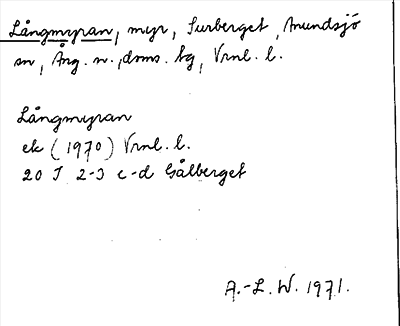 Långmyran, myr, Surberget, Anundsjö
sn, Ång. n., doms. sg, Vrnl. l.
Långmyran
ek (1970) Vrnl. l.
20 J 2-3 c-d Gålberget
A.-L. W. 1971.